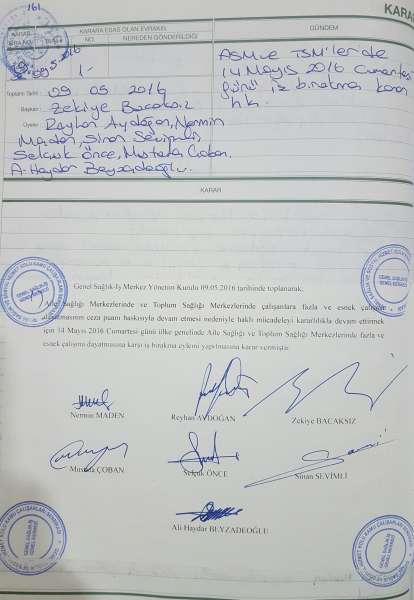 161
KARAR
KARARA ESAS OLAN EVRAKIN
GÜNDEM
KARAR
SIRA NO.
NO.
NEREDEN GÖNDERİLDİĞİ
09.5.2016
1-
ASM ve TSM'lerde
14 Mayıs 2016 Cumartesi
günü iş bırakma kararı
hk.
Toplantı Tarihi: 09 05 2016
Başkan: Zekiye Bacaksız
Üyeler: Reyhan Aydoğan, Nermin
Maden, Sinan Sevimli,
Selçuk Önce, Mustafa Çoban.
A. Haydar Beyzadeoğlu.
KARAR
Genel Sağlık-İş Merkez Yönetim Kurulu 09.05.2016 tarihinde toplanarak;
Aile Sağlığı Merkezlerinde ve Toplum Sağlığı Merkezlerinde çalışanlara fazla ve esnek çalışma
dayatmasının ceza puanı baskısıyla devam etmesi nedeniyle haklı mücadeleyi kararlılıkla devam ettirmek
için 14 Mayıs 2016 Cumartesi günü ülke genelinde Aile Sağlığı ve Toplum Sağlığı Merkezlerinde fazla ve
esnek çalışma dayatmasına karşı iş bırakma eylemi yapılmasına karar vermiştir.
Nermin MADEN
Reyhan AYDOĞAN
Zekiye BACAKSIZ
Mustafa ÇOBAN
Selçuk ÖNCE
Sinan SEVİMLİ
Ali Haydar BEYZADEOĞLU